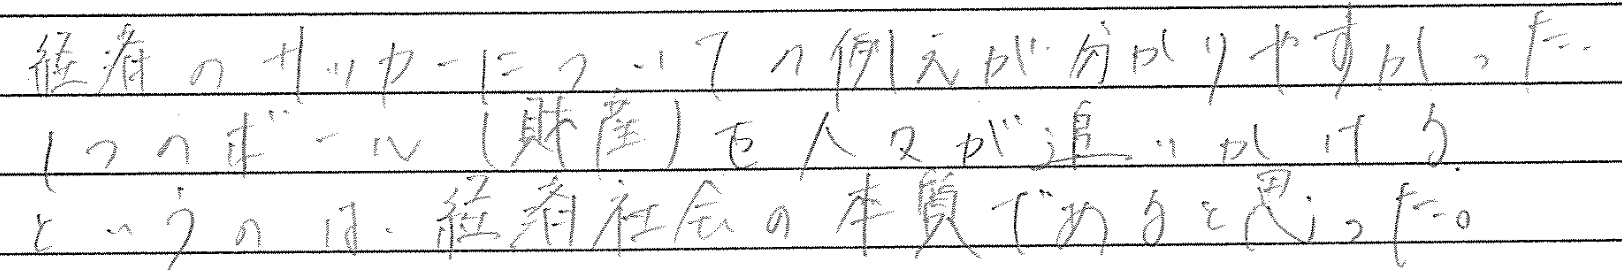 経済のサッカーについての例えが分かりやすかった.
1つのボール(財産)を人々が追いかける.
というのは.経済社会の本質であると思った。